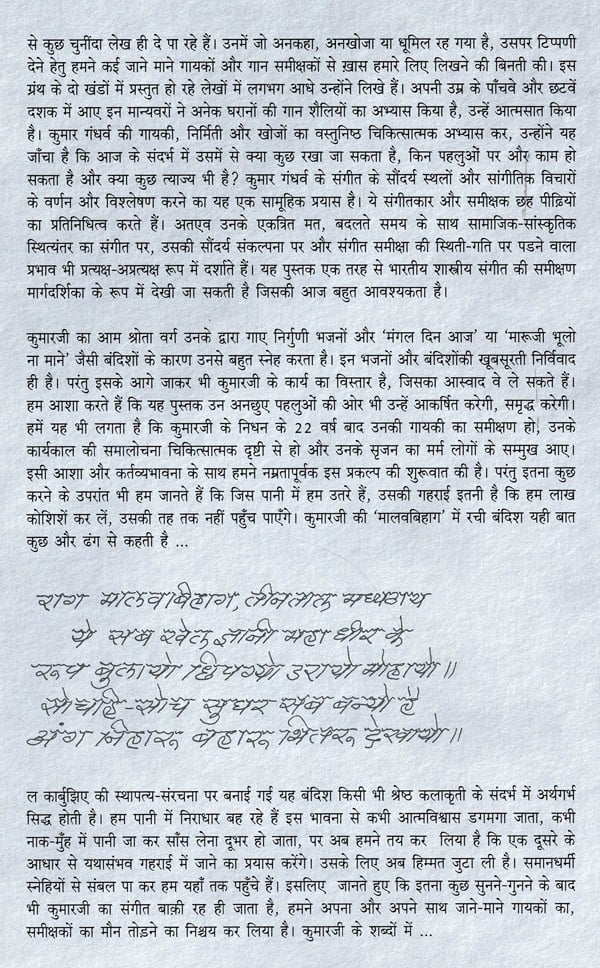 से कुछ चुनींदा लेख ही दे पा रहे हैं। उनमें जो अनकहा, अनखोजा या धूमिल रह गया है, उसपर टिप्पणी
देने हेतु हमने कई जाने माने गायकों और गान समीक्षकों से ख़ास हमारे लिए लिखने की बिनती की। इस
ग्रंथ के दो खंडों में प्रस्तुत हो रहे लेखों में लगभग आधे उन्होंने लिखे हैं। अपनी उम्र के पाँचवे और छटवें
दशक में आए इन मान्यवरों ने अनेक घरानों की गान शैलियों का अभ्यास किया है, उन्हें आत्मसात किया
है। कुमार गंधर्व की गायकी, निर्मिती और खोजों का वस्तुनिष्ठ चिकित्सात्मक अभ्यास कर, उन्होंने यह
जाँचा है कि आज के संदर्भ में उसमें से क्या कुछ रखा जा सकता है, किन पहलुओं पर और काम हो
सकता है और क्या कुछ त्याज्य भी है? कुमार गंधर्व के संगीत के सौंदर्य स्थलों और सांगीतिक विचारों
के वर्णन और विश्लेषण करने का यह एक सामूहिक प्रयास है। ये संगीतकार और समीक्षक छह पीढ़ियों
का प्रतिनिधित्व करते हैं। अतएव उनके एकत्रित मत, बदलते समय के साथ सामाजिक-सांस्कृतिक
स्थित्यंतर का संगीत पर, उसकी सौंदर्य संकल्पना पर और संगीत समीक्षा की स्थिती-गति पर पडने वाला
प्रभाव भी प्रत्यक्ष-अप्रत्यक्ष रूप में दर्शाते हैं। यह पुस्तक एक तरह से भारतीय शास्त्रीय संगीत की समीक्षण
मार्गदर्शिका के रूप में देखी जा सकती है जिसकी आज बहुत आवश्यकता है।
कुमारजी का आम श्रोता वर्ग उनके द्वारा गाए निर्गुणी भजनों और ‘मंगल दिन आज’ या ‘मारूजी भूलो
ना माने’ जैसी बंदिशों के कारण उनसे बहुत स्नेह करता है। इन भजनों और बंदिशोंकी खूबसूरती निर्विवाद
ही है। परंतु इसके आगे जाकर भी कुमारजी के कार्य का विस्तार है, जिसका आस्वाद वे ले सकते हैं।
हम आशा करते हैं कि यह पुस्तक उन अनछुए पहलुओं की ओर भी उन्हें आकर्षित करेगी, समृद्ध करेगी।
हमें यह भी लगता है कि कुमारजी के निधन के 22 वर्ष बाद उनकी गायकी का समीक्षण हो, उनके
कार्यकाल की समालोचना चिकित्सात्मक दृष्टी से हो और उनके सृजन का मर्म लोगों के सम्मुख आए।
इसी आशा और कर्तव्यभावना के साथ हमने नम्रतापूर्वक इस प्रकल्प की शुरूवात की है। परंतु इतना कुछ
करने के उपरांत भी हम जानते हैं कि जिस पानी में हम उतरे हैं, उसकी गहराई इतनी है कि हम लाख
कोशिशें कर लें, उसकी तह तक नहीं पहुँच पाएँगे। कुमारजी की ‘मालवबिहाग’ में रची बंदिश यही बात
कुछ और ढंग से कहती है ...
राग मालवबिहाग, तीनताल मध्यलय
ये सब खेल ज्ञानी महा धीर के
रूप बुलायो छिपग्यो डरायो मोहायो॥
सोचहि-सोच सुघर सब बन्यो है
अंग निहारू बहारू भितरू देखायो॥
ल कार्बुझिए की स्थापत्य-संरचना पर बनाई गई यह बंदिश किसी भी श्रेष्ठ कलाकृती के संदर्भ में अर्थगर्भ
सिद्ध होती है। हम पानी में निराधार बह रहे हैं इस भावना से कभी आत्मविश्वास डगमगा जाता, कभी
नाक-मुँह में पानी जा कर साँस लेना दूभर हो जाता, पर अब हमने तय कर लिया है कि एक दूसरे के
आधार से यथासंभव गहराई में जाने का प्रयास करेंगे। उसके लिए अब हिम्मत जुटा ली है। समानधर्मी
स्नेहियों से संबल पा कर हम यहाँ तक पहुँचे हैं। इसलिए जानते हुए कि इतना कुछ सुनने-गुनने के बाद
भी कुमारजी का संगीत बाक़ी रह ही जाता है, हमने अपना और अपने साथ जाने-माने गायकों का,
समीक्षकों का मौन तोड़ने का निश्चय कर लिया है। कुमारजी के शब्दों में ...